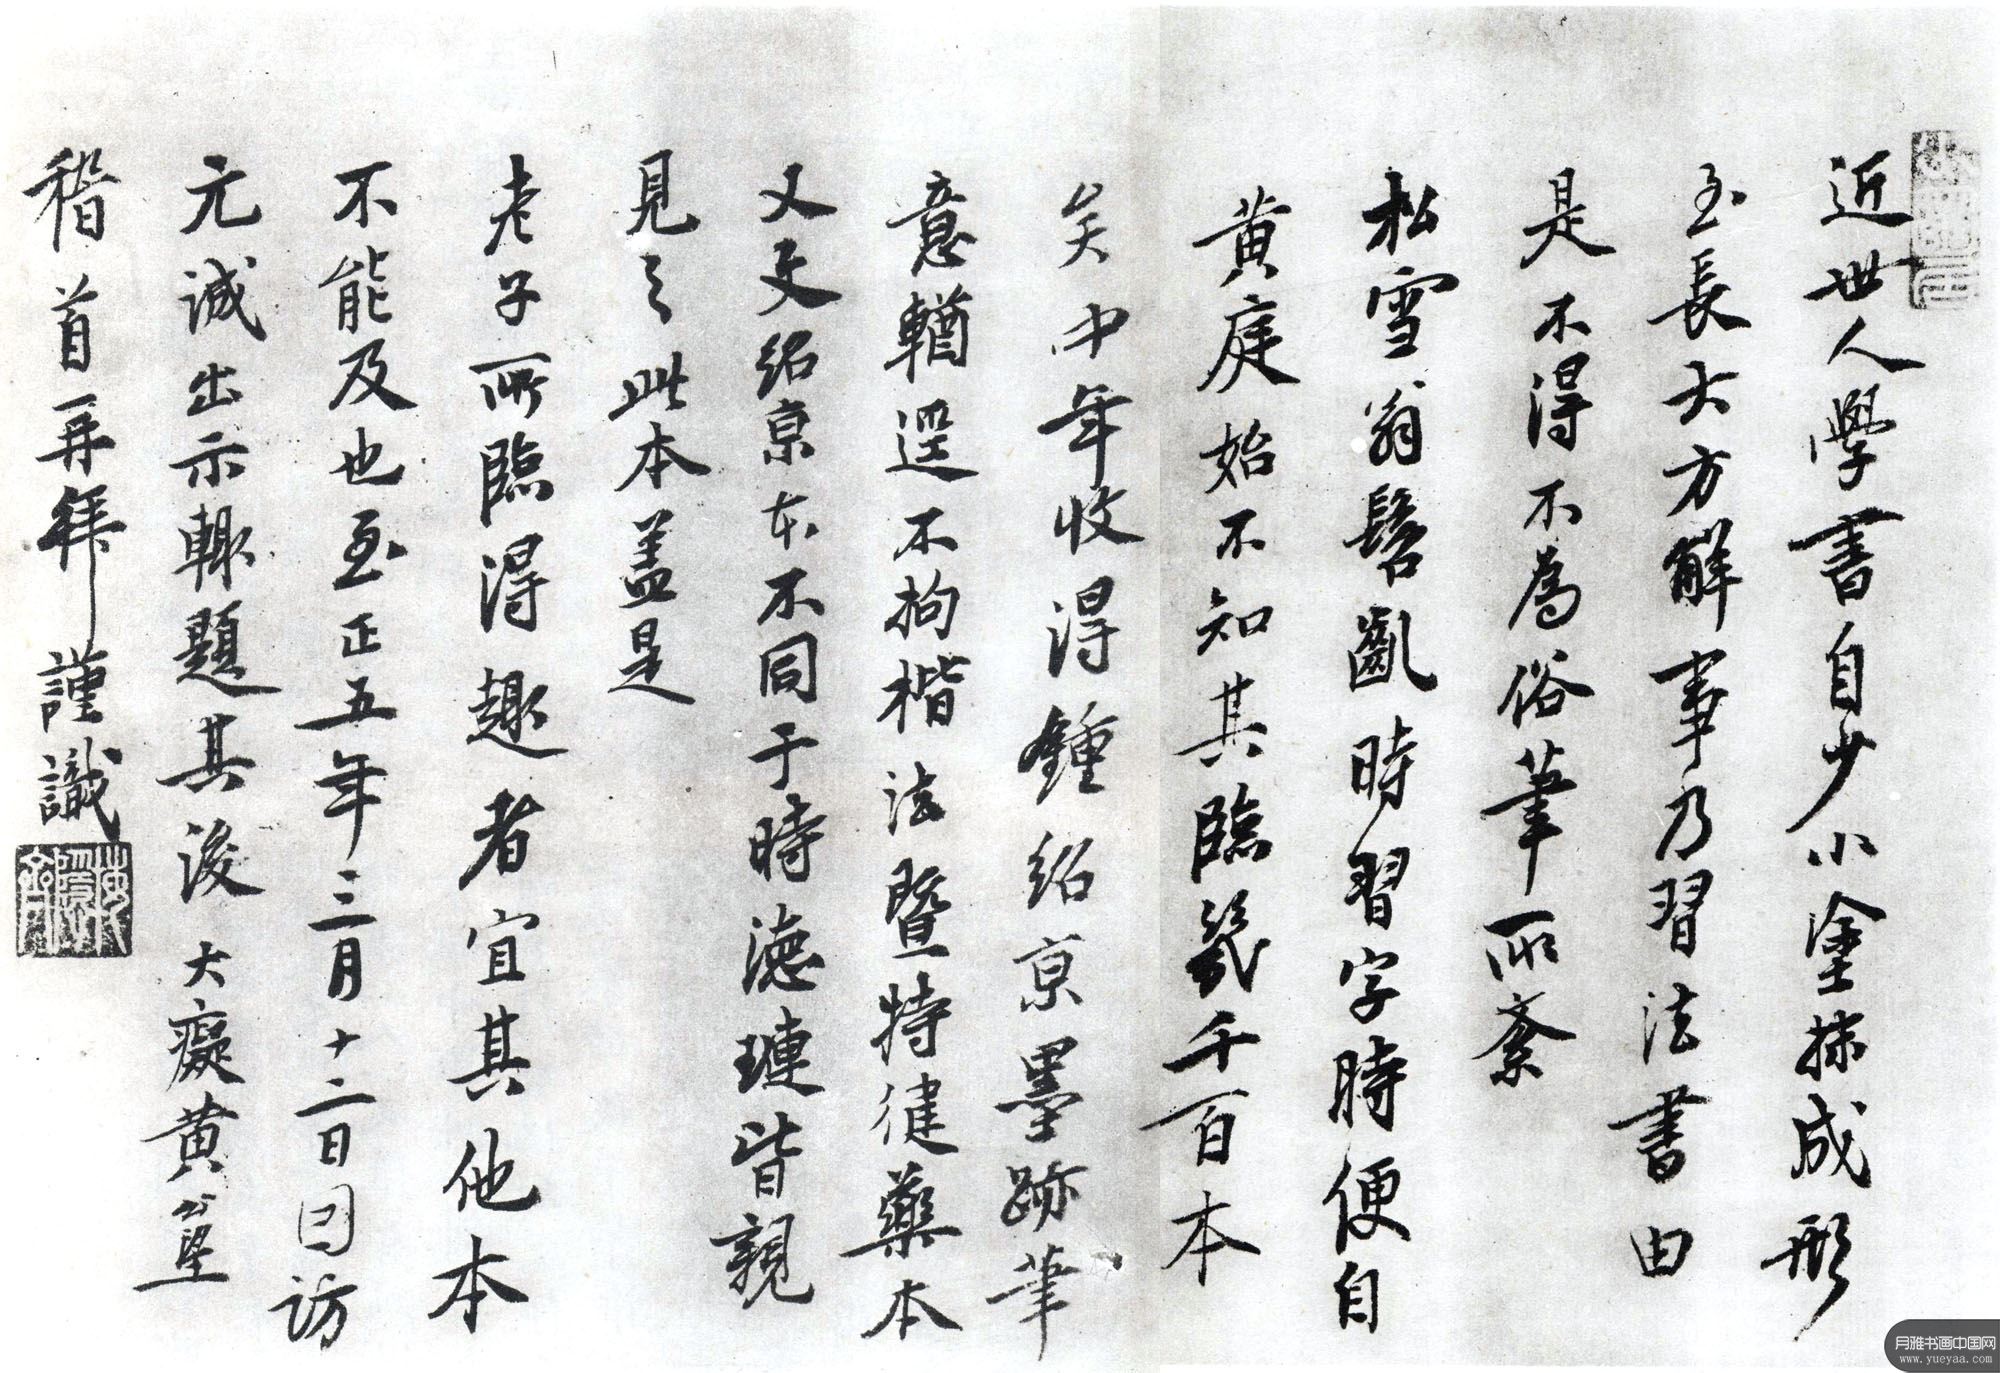 近世人學書自少小塗抹成形
至長大方解事乃習法書由
是不得不為俗筆所紊
松雪翁髫齔時習字時便自
黃庭始不知其臨幾千百本
矣中年收得鍾紹京墨跡筆
意輶逕不拘楷法暨特健藥本
又文紹京本不同于時德璉皆親
見之此本盖是
老子所臨得趣者宜其他本
不能及也至正五年三月十二日因訪
元誠出示輙題其後大癡黃公望
稽首再拜謹識
月雅书画中国网
www.yueyaa.com